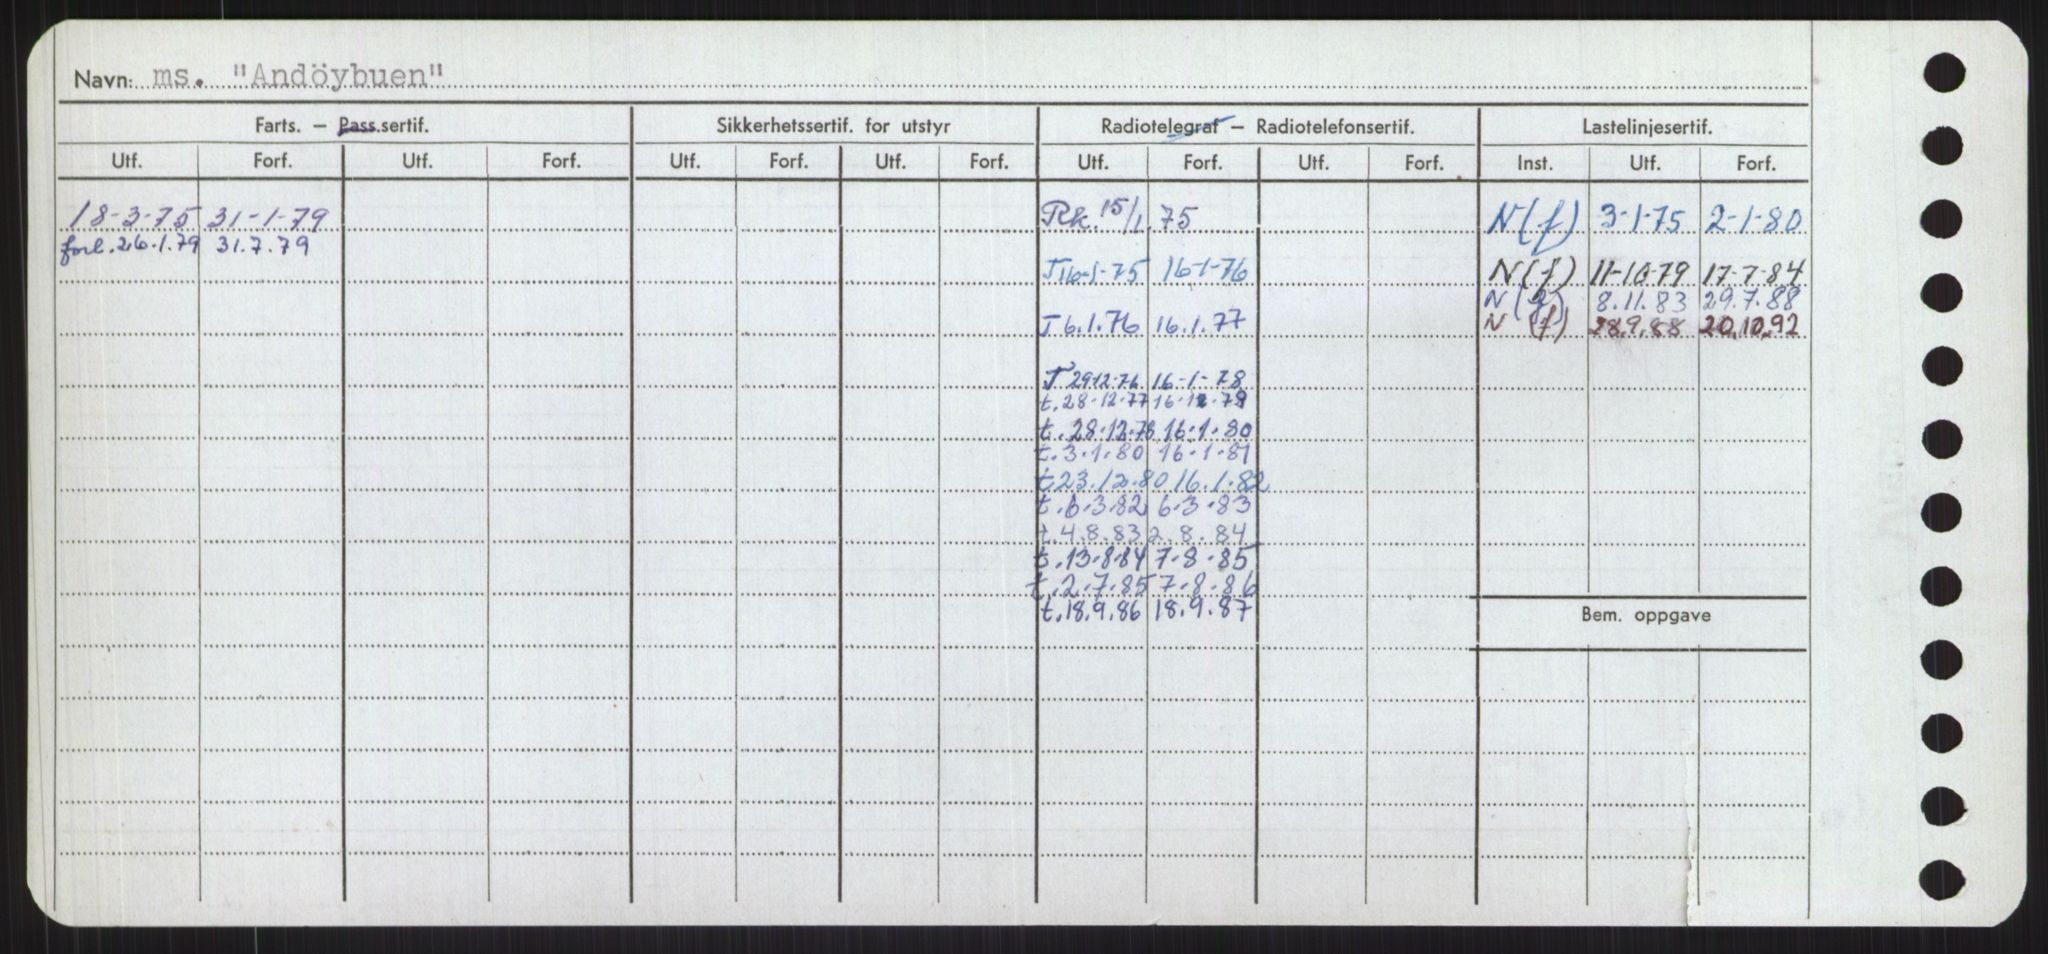 Navn: ms. "Andöybuen"
Farts. — Pass.sertif. Sikkerhetssertif. for utstyr Radiotelegraf — Radiotelefonsertif. Lastelinjesertif.
Utf. Forf. Utf. Forf. Utf. Forf. Utf. Forf. Utf. Forf. Utf. Forf. Inst. Utf. Forf.
18-3-75 31-1-79 Rk. 15/1.75 N(f) 3-1-75 2-1-80
forl. 26.1.79 31.7.79
T 16-1-75 16-1-76 N(f) 11-10-79 17-7-84
N(f) 8.11.83 29.7.88
T 6.1.76 16.1.77 N (f) 28.9.88 20.10.92
T 29-12-76 16-1-78
t. 28-12-77 16-1-79
t. 28.12.78 16.1.80
t. 3.1.80 16.1.81
t. 23.12.80 16.1.82
t. 6.3.82 6.3.83
t. 4.8.83 2.8.84
t. 13.8.84 7.8.85
t. 2.7.85 7.8.86
t. 18.9.86 18.9.87
Bem. oppgave